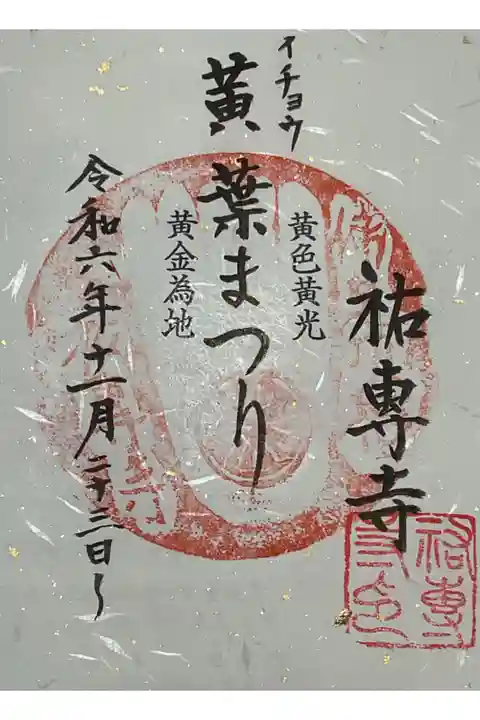 祐專寺
黄色黄光
イチョウ
黄葉まつり
黄金為地
令和六年十一月二十三日〜
祐專
寺印